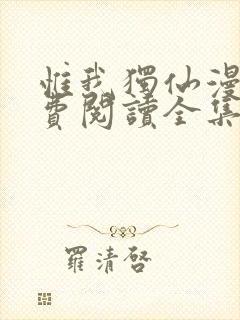 惟我獨仙漫
費閱讀全集
羅清啓